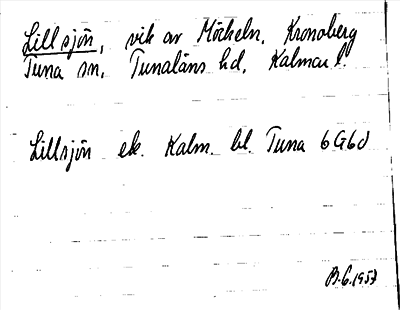 Lillsjön, vik av Möckeln, Kronoberg
Tuna sn, Tunaläns hd, Kalmar l.
Lillsjön ek. Kalm. bl. Tuna 6G6d
B.G. 1957